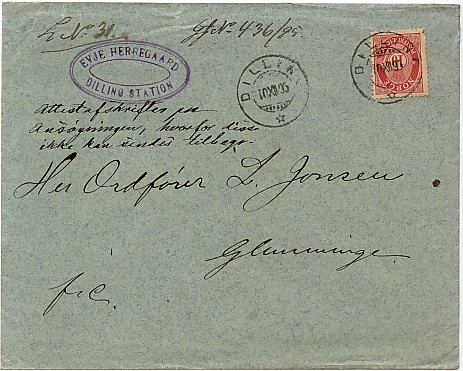 L. No. 31.
Gf No 436/95.
EVJE HERREGAARD
DILLING STATION
DILLIN
10 XII 95
NORGE
10
Attestafskrifter paa
Ansøgningen, hvorfor disse
ikke kan sendes tilbage.
Her Ordfører L. Jonsen
Glemminge
f.c.